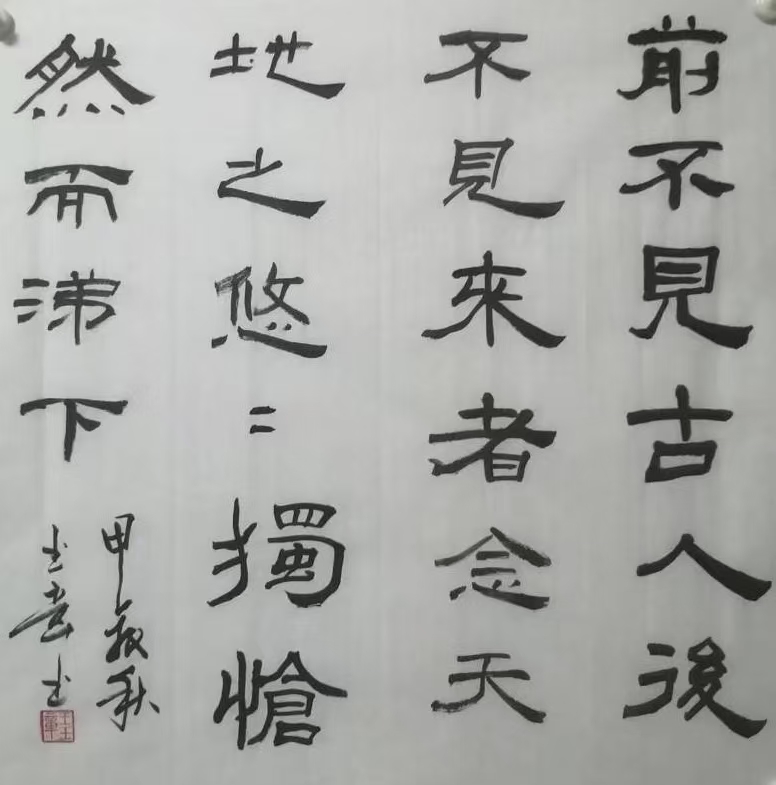 前不見古人後
不見來者念天
地之悠〻獨愴
然而涕下
甲辰秋